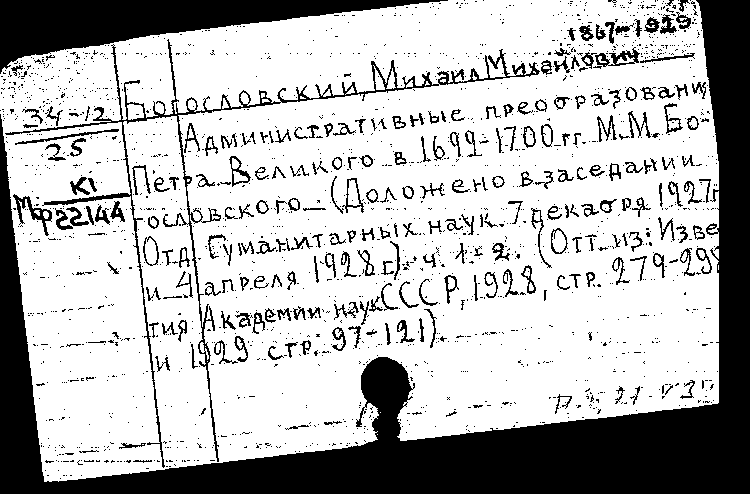 1867-1929
Богословский, Михаил Михайлович
34-12
25
К1
Мф22144
Административные преобразовани
Петра Великого в 1699-1700 гг. М.М. Бо-
гословского. (Доложено в заседании
Отд. Гуманитарных наук 7 декабря 1927г
и 4 апреля 1928 г.). ч. 1-2. (Отт. из: Изве
тия Академии наук СССР, 1928, стр. 279-298
и 1929 стр. 97-121).